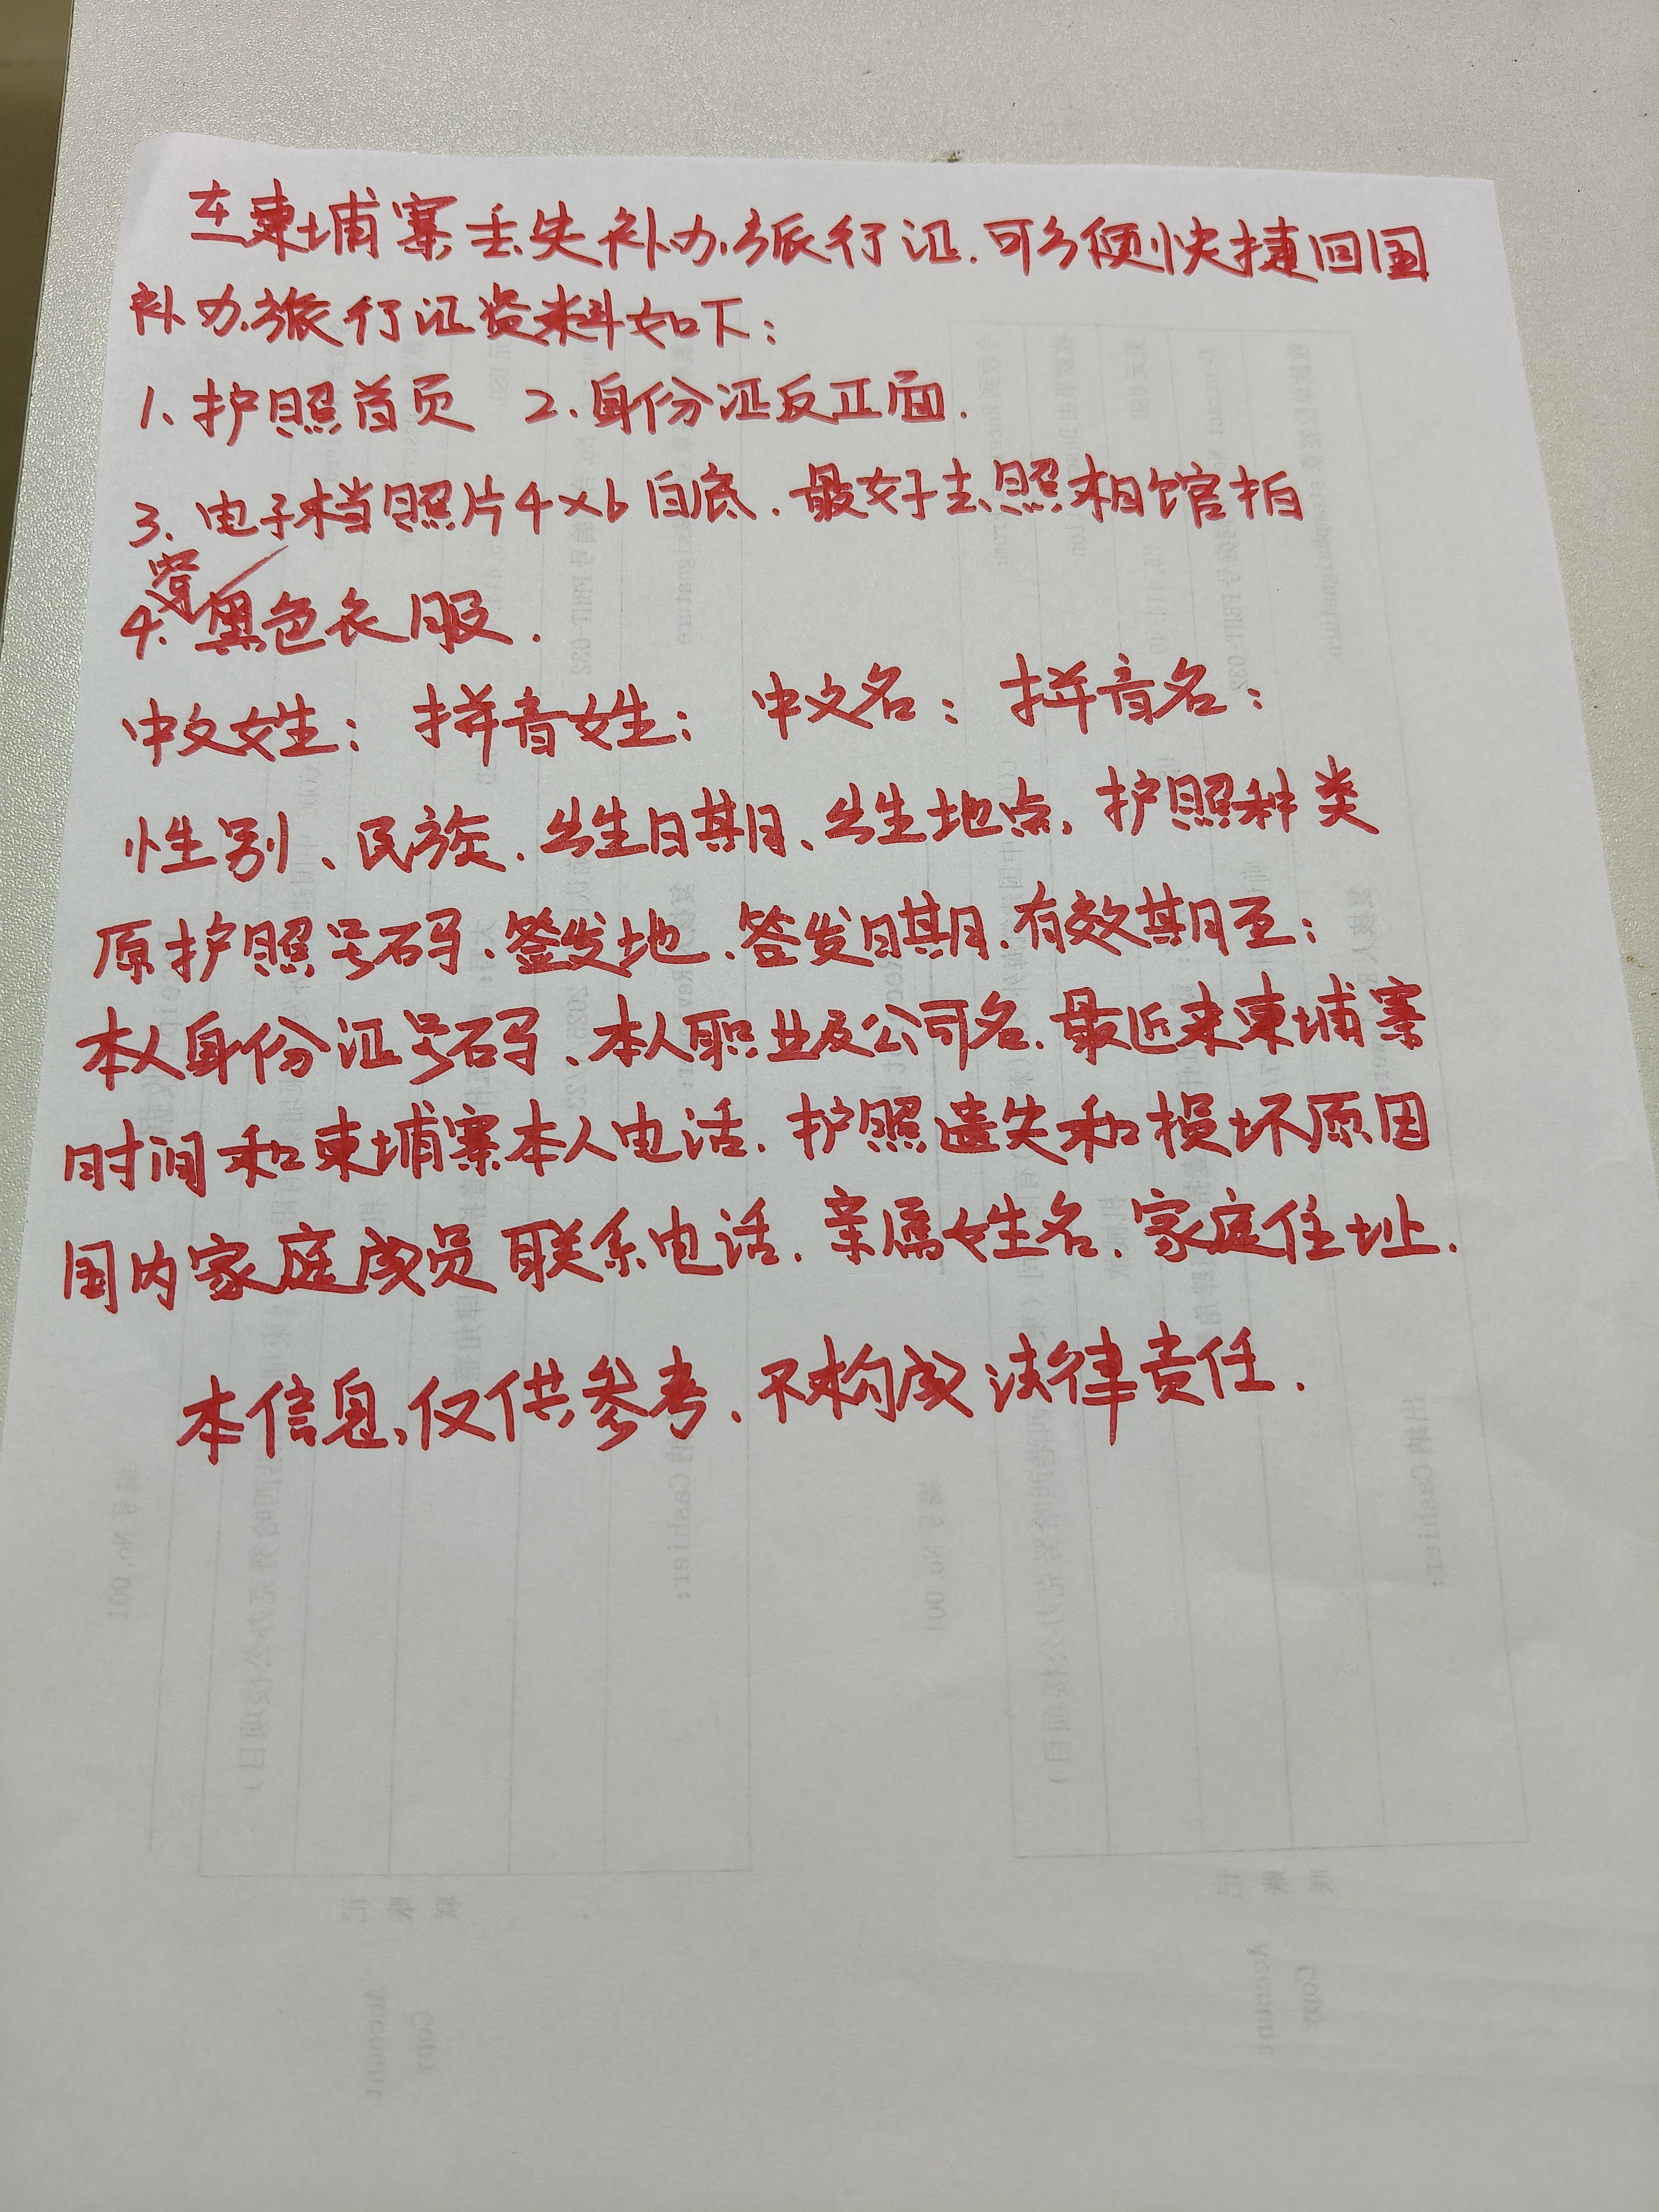 在柬埔寨丢失补办旅行证.可方便快捷回国
补办旅行证资料如下:
1、护照首页 2.身份证反正面.
3、电子档照片4×6白底.最好去照相馆拍
穿
4.黑色衣服.
中文姓: 拼音姓: 中文名: 拼音名:
性别、民族.出生日期、出生地点,护照种类
原护照号码、签发地.签发日期.有效期至:
本人身份证号码、本人职业及公司名.最近来柬埔寨
时间和柬埔寨本人电话.护照遗失和损坏原因
国内家庭成员联系电话.亲属姓名.家庭住址.
本信息、仅供参考.不构成法律责任.